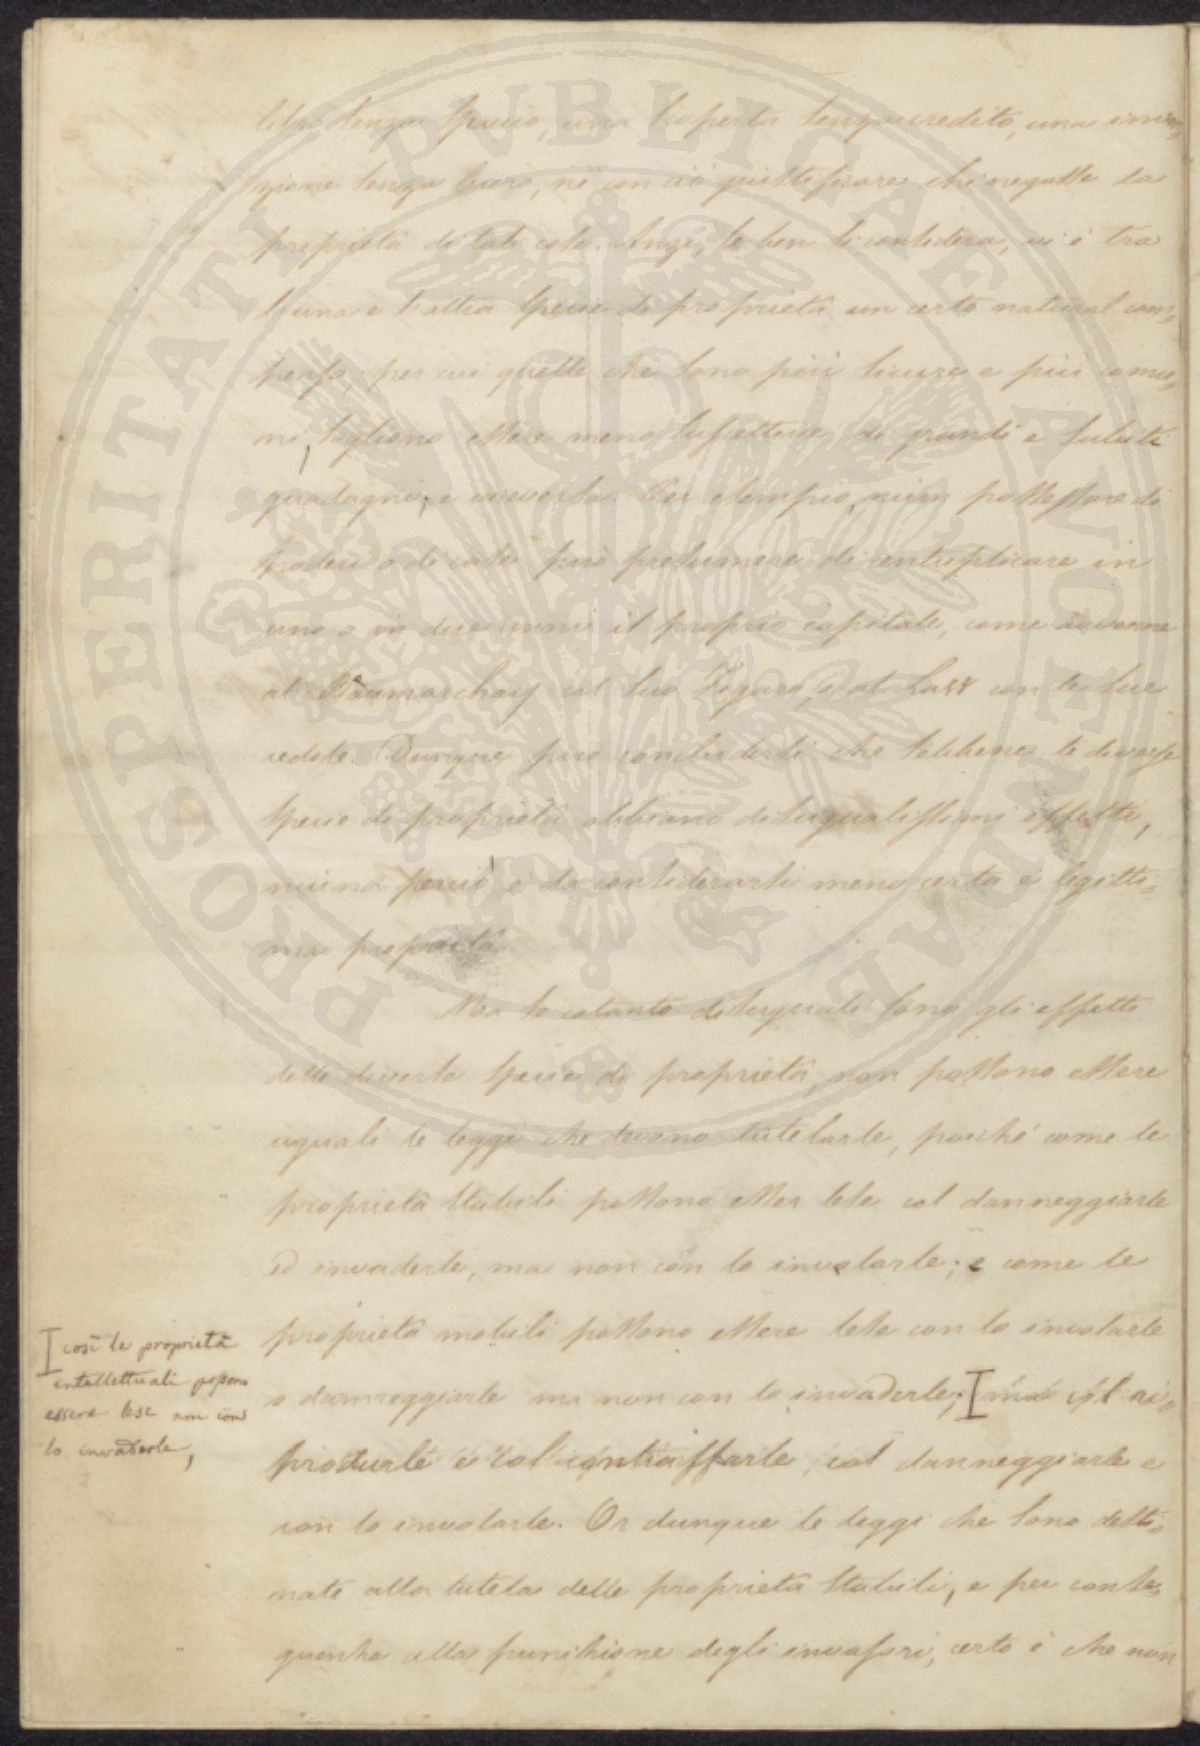 libro senza spaccio, una scoperta senza credito, una inven=
zione senza lucro, nè con ciò giustificare chi negasse la
proprietà di tali cose. Anzi, se ben si considera, vi è tra
l'una e l'altra specie di proprietà un certo natural com=
penso, per cui quelle che sono più sicure e più comu=
ni, sogliono essere meno suscettive di grandi e subiti
guadagni, e viceversa. Per esempio, niun possessore di
poderi o di case può presumere di centuplicare in
uno o in due anni il proprio capitale, come avvenne
al Beaumarchay col suo Figaro, e al con le sue
vedute. Dunque può concludersi che sebbene le diverse
specie di proprietà abbiano disugualissimi effetti,
niuna perciò è da considerarsi meno certa e legitti=
ma proprietà.
Ma se cotanto disuguali sono gli effetti
delle diverse specie di proprietà, non possono essere
uguali le leggi che devono tutelarle, poichè come le
proprietà stabili possono esser lese col danneggiarle
ed invaderle, ma non con lo involarle; e come le
proprietà mobili possono essere lese con lo involarle
o danneggiarle ma non con lo invaderle; ma col ri=
produrle e col contraffarle, col danneggiarle e
con lo involarle. Or dunque le leggi che sono desti=
nate alla tutela delle proprietà stabili, e per conse=
guenza alla punizione degli invasori, certo è che non
così le proprietà
intellettuali possono
essere lese non con
lo invaderle,
PROSPERITATI PUBLICAE AUGENDAE